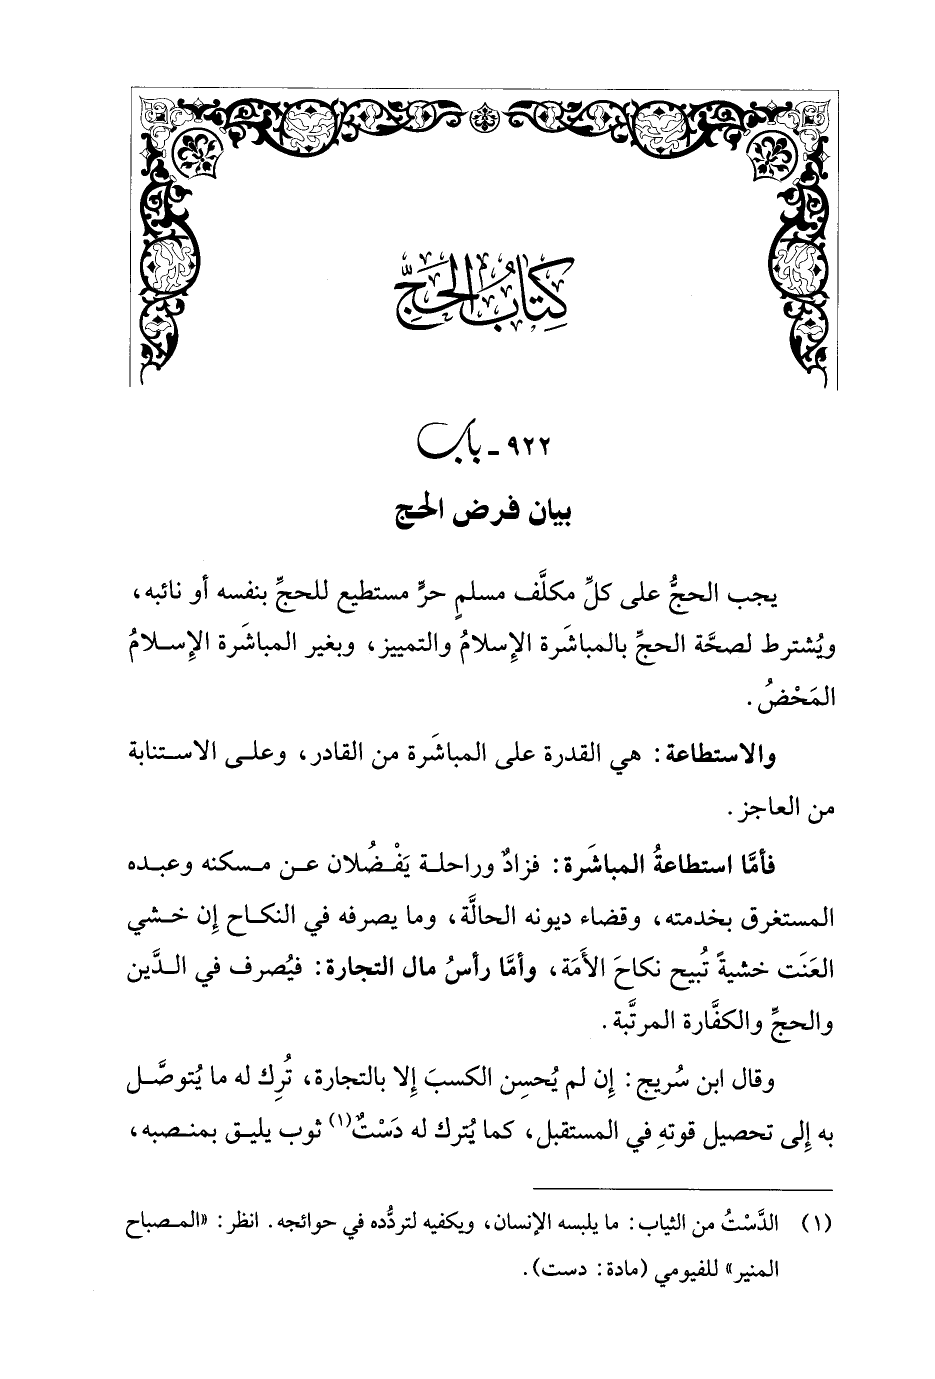 كِتَابُ الحَجِّ
٩٢٢ - باب
بيان فرض الحج
يجب الحجُّ على كلِّ مكلَّف مسلمٍ حرٍّ مستطيع للحجِّ بنفسه أو نائبه،
ويُشترط لصحَّة الحجِّ بالمباشَرة الإسلامُ والتمييز، وبغير المباشَرة الإسلامُ
المَحْضُ.
والاستطاعة: هي القدرة على المباشَرة من القادر، وعلى الاستنابة
من العاجز.
فأمَّا استطاعةُ المباشَرة: فزادٌ وراحلة يَفْضُلان عن مسكنه وعبده
المستغرق بخدمته، وقضاء ديونه الحالَّة، وما يصرفه في النكاح إن خشي
العَنَت خشيةً تُبيح نكاحَ الأَمَة، وأمَّا رأسُ مال التجارة: فيُصرف في الدَّين
والحجِّ والكفَّارة المرتَّبة.
وقال ابن سُريج: إن لم يُحسِن الكسبَ إلا بالتجارة، تُرِك له ما يُتوصَّل
به إلى تحصيل قوتهِ في المستقبل، كما يُترك له دَسْتُ(١) ثوب يليق بمنصبه،
(١) الدَّسْتُ من الثياب: ما يلبسه الإنسان، ويكفيه لتردُّده في حوائجه. انظر: «المصباح
المنير» للفيومي (مادة: دست).